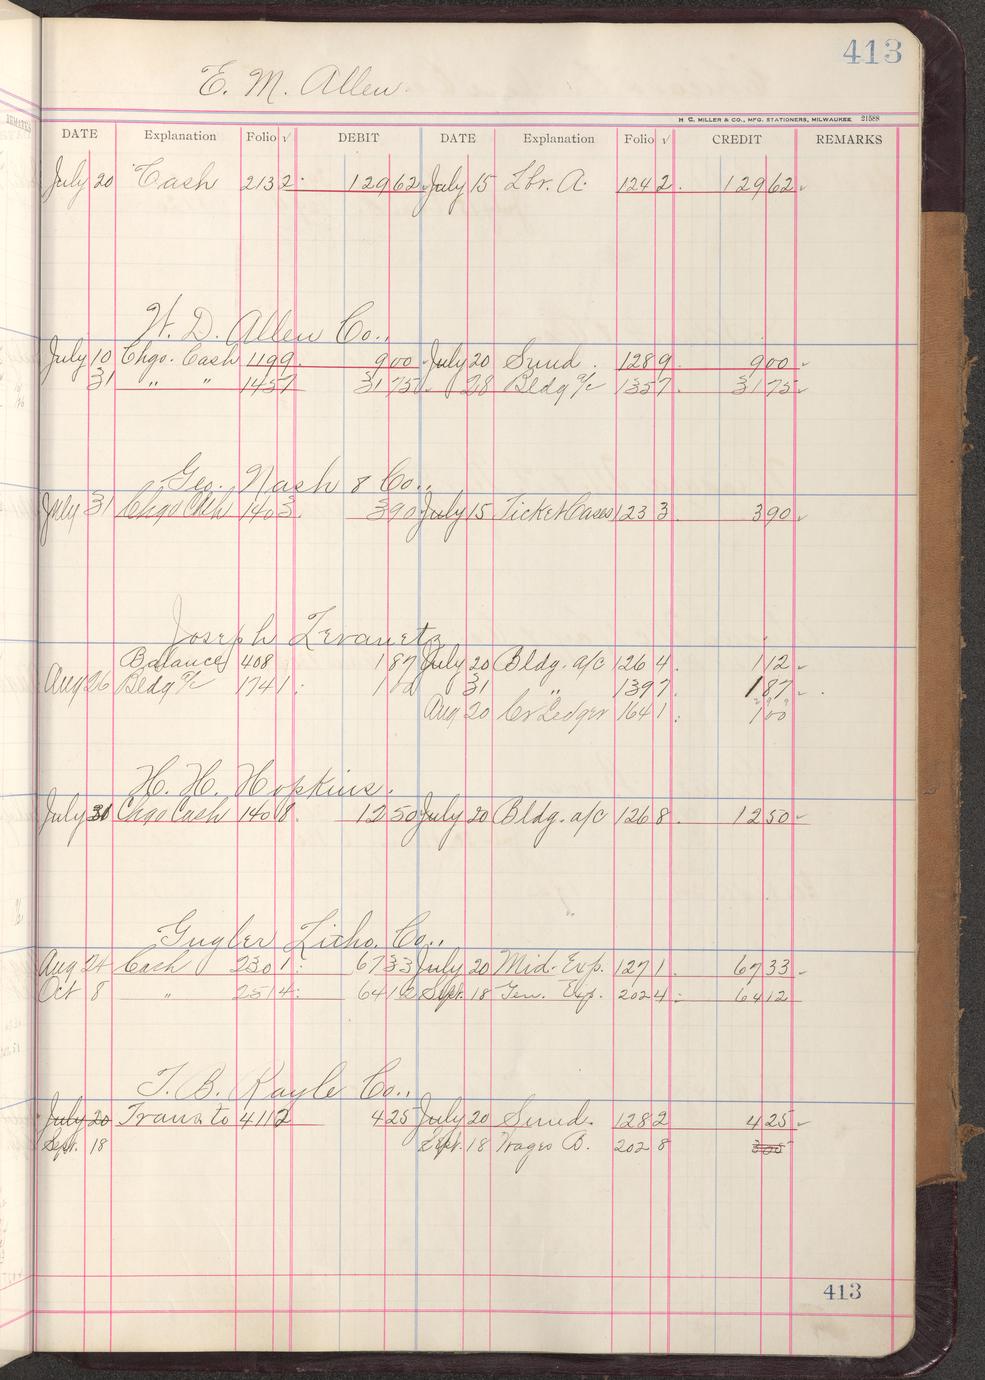 413
E. M. Allen.
H. C. MILLER & CO., MFG. STATIONERS, MILWAUKEE 21588
DATE Explanation Folio √ DEBIT DATE Explanation Folio √ CREDIT REMARKS
July 20 Cash 2132 12962 July 15 Lbr. A. 1242 12962
W. D. Allen Co.,
July 10 Chgo. Cash 1199 900 July 20 Sund. 1289 900
31 " " 1457 3175 28 Bldg a/c 1357 3175
Geo. Nash & Co.,
July 31 Chgo Cash 1403 390 July 15 Ticket Cases 1233 390
Joseph
Balance 408 187 July 20 Bldg. a/c 1264 112
Aug 26 Bldg a/c 1741 31 " 1397 187
Aug 20 Cr Ledger 1641 100
H. H. Hopkins.
July 31 Chgo Cash 1408 1250 July 20 Bldg. a/c 1268 1250
Gugler Litho. Co.,
Aug 24 Cash 2301 6733 July 20 Mid. Exp. 1271 6733
Oct 8 " 2514 6412 Sept. 18 Gen. Exp. 2024 6412
T. B. Rayle Co.,
July 20 Trans to 4112 425 July 20 Sund. 1282 425
Sept. 18 Sept. 18 Wages B. 2028
413